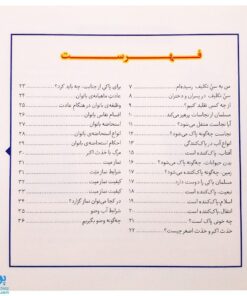 فـهـرسـت
۷ به سنّ تکلیف رسیده‌ام
۸ سنّ تکلیف در پسران و دختران
۹ از چه کسی تقلید کنیم؟
۱۰ مسلمان از نجاسات پرهیز می‌کند
۱۱ آیا نجاست منتقل می‌شود؟
۱۲ نجاست چگونه پاک می‌شود؟
۱۳ انواع آب در پاک‌کنندگی
۱۴ آفتاب، پاک‌کننده است
۱۵ بدن حیوانات، چگونه پاک می‌شود؟
۱۶ زمین، پاک‌کننده است
۱۷ مسلمان پاکی را دوست دارد
۱۸ تبعیت، پاک‌کننده است
۱۹ انتقال، پاک‌کننده است
۲۰ انقلاب، پاک‌کننده است
۲۱ چه خونی پاک است؟
۲۲ حدث اکبر و حدث اصغر چیست؟
۲۳ برای پاکی از جنابت، چه باید کرد؟
۲۴ عادت ماهیانه‌ی بانوان
۲۵ وظیفه‌ی بانوان در هنگام عادت
۲۶ اقسام نفاس بانوان
۲۷ استحاضه بانوان
۲۸ انواع استحاضه‌ی بانوان
۲۹ احکام استحاضه‌ی بانوان
۳۰ مرگ یا حدث اکبر
۳۱ نماز میت
۳۱ شرایط نماز میت
۳۲ کیفیت نماز میت
۳۲ کیفیت نماز میت
۳۴ در کجا می‌توان نماز گزارد؟
۳۵ شرایط آب وضو
۳۶ چگونه وضو بگیریم